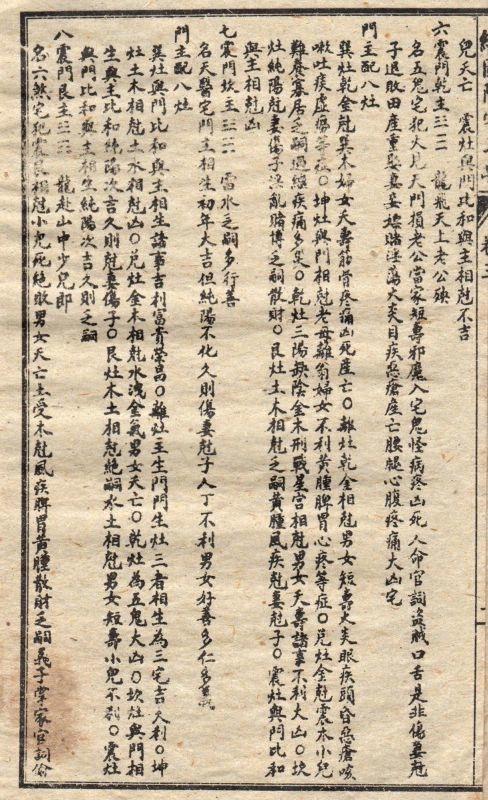 兒夭亡　　震灶與門比和與主相尅不吉
六震門乾主三三　龍飛天上老公殃
名五鬼宅犯火見天門損老公當家短壽邪魔入宅鬼怪病疼凶死人命官詞盜賊口舌是非傷妻尅
子退敗田產重娶妻妾嫖賭淫蕩火炎目疾惡瘡産亡腰腿心腹疼痛大凶宅
門主配八灶
巽灶乾金尅巽木婦女夭壽筋骨疼痛凶死産亡〇離灶乾金相尅男女短壽火炎眼疾頭昏惡瘡咳
嗽吐痰虛癆等症〇坤灶與門相尅老母離翁婦女不利黃腫脾胃心疼等症〇兌灶金尅震木小兒
難養寡居乏嗣過繼疾痛多災〇乾灶三陽缺陰金木刑戰星宮相尅男女夭壽諸事不利大凶〇坎
灶純陽尅妻傷子淫亂賭博乏嗣散財〇艮灶土木相尅乏嗣黃腫風疾尅妻尅子〇震灶與門比和
與主相尅凶
七震門坎主三三　雷水乏嗣多行善
名天醫宅門主相生初年大吉但純陽不化久則傷妻尅子人丁不利男女好善多仁多義
門主配八灶
巽灶與門比和與主相生諸事吉利富貴榮昌〇離灶主生門門生灶三者相生為三宅吉大利〇坤
灶土木相尅土水相尅凶〇兌灶金木相尅水洩金氣男女夭亡〇乾灶為五鬼大凶〇坎灶與門相
生與主比和純陽次吉久則尅妻傷子〇艮灶木土相尅絕嗣水土相尅男女短壽小兒不利〇震灶
與門比和與主相生純陽次吉久則乏嗣
八震門艮主三三　龍赴山中少兒郎
名六煞宅犯震艮相尅小兒死絕敗男女夭亡土受木尅風疾脾胃黃腫散財乏嗣義子掌家官詞偷